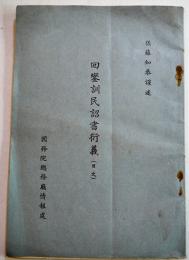 佐藤知恭謹述
回鑾訓民詔書衍義（日文）
國務院總務廳情報處